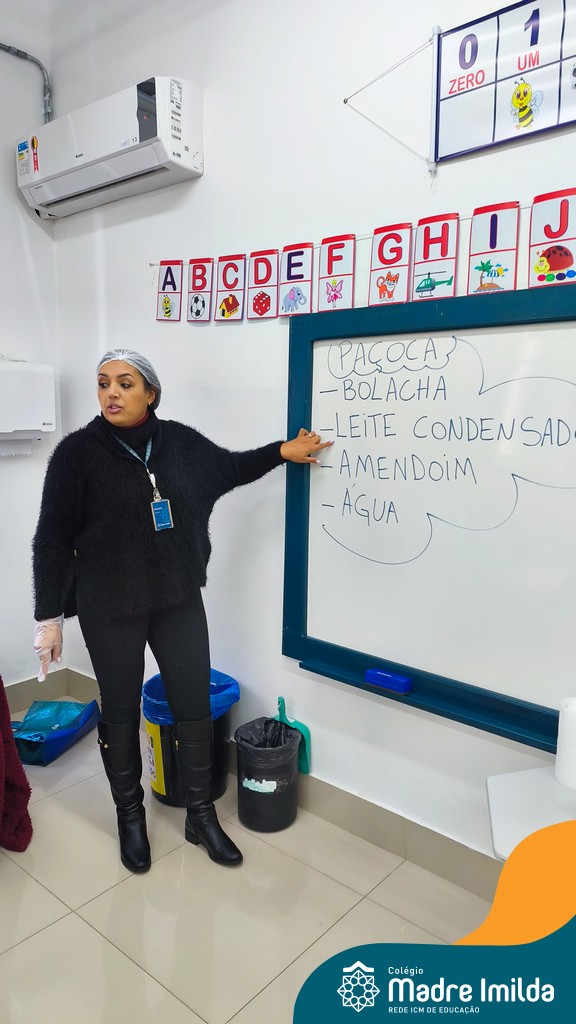 0
1
ZERO
UM
A
B
C
D
E
F
G
H
I
J
PAÇOCA
- BOLACHA
- LEITE CONDENSADO
- AMENDOIM
- ÁGUA
Colégio
Madre Imilda
REDE ICM DE EDUCAÇÃO